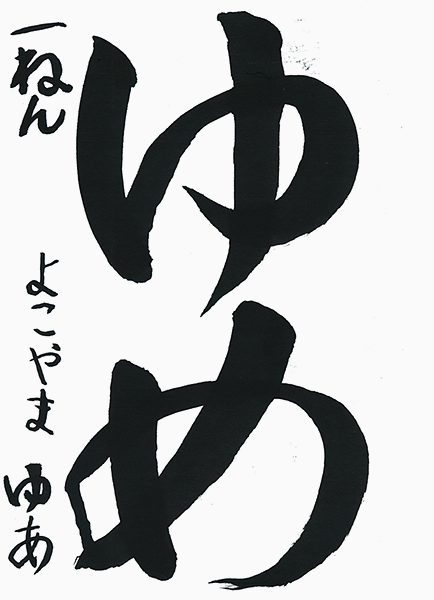 ゆめ
一ねん よこやま ゆあ